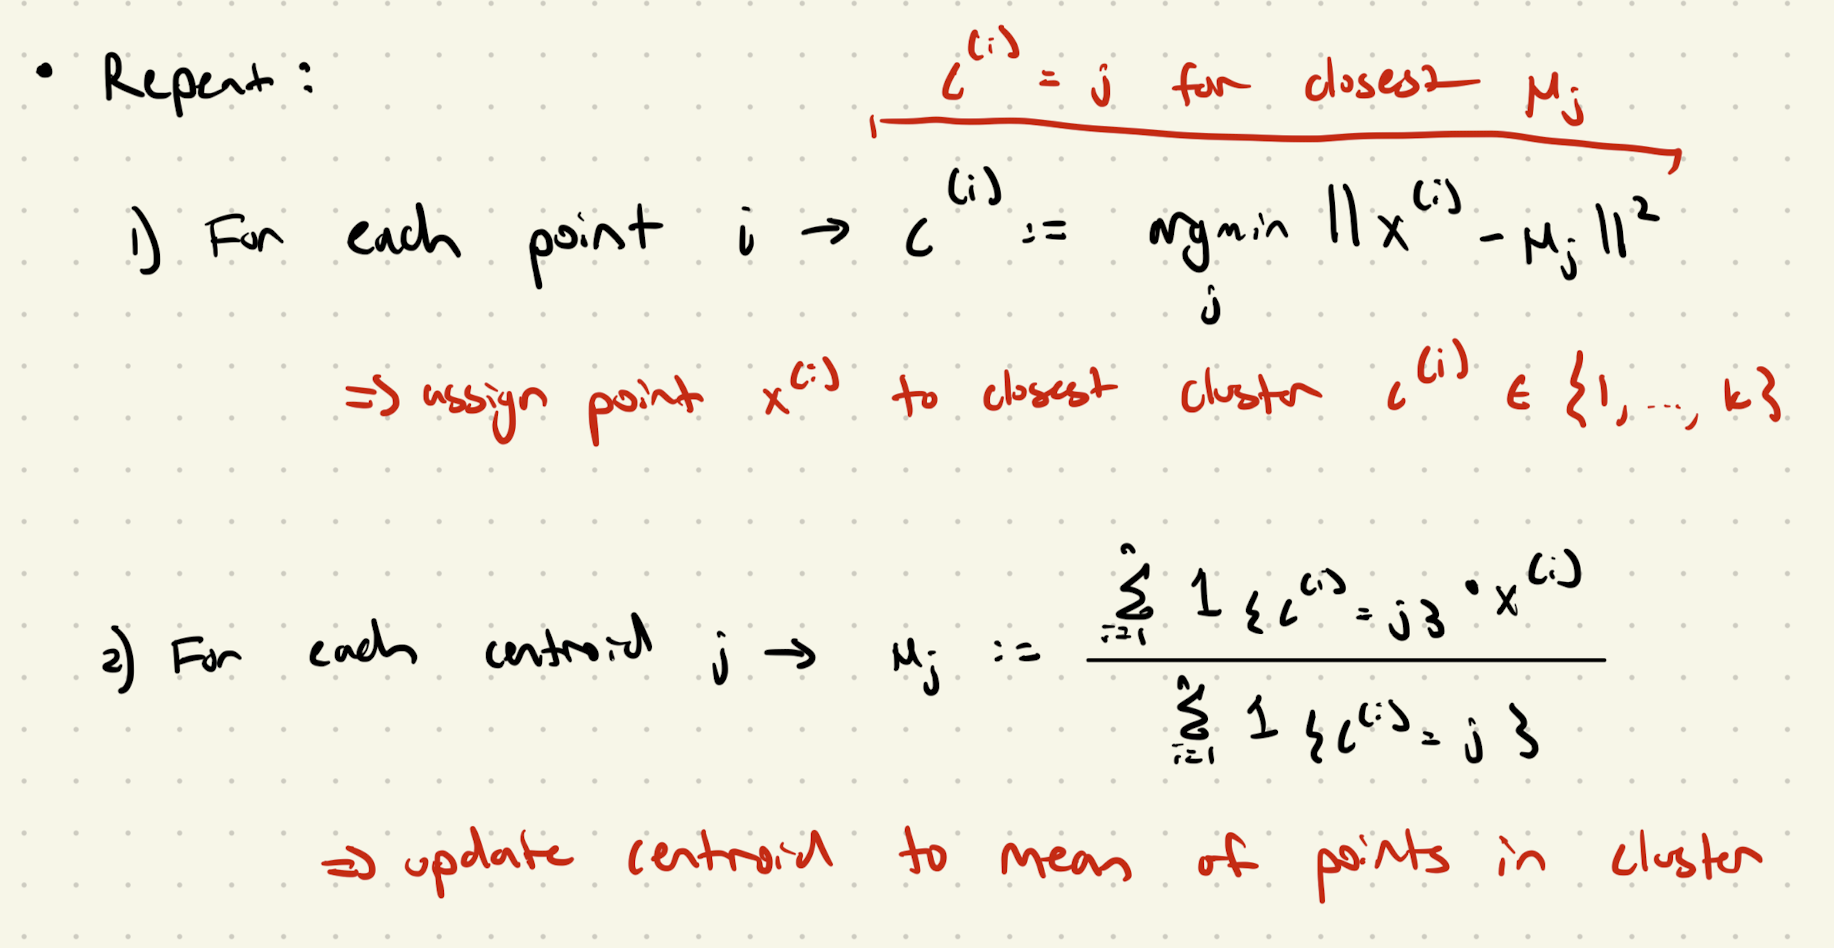 c^(i) = j for closest μ_j
• Repeat:
1) For each point i → c^(i) := argmin_j ||x^(i) - μ_j||^2
⇒ assign point x^(i) to closest cluster c^(i) ∈ {1, ..., k}
2) For each centroid j → μ_j := (∑_{i=1}^n 1{c^(i) = j} · x^(i)) / (∑_{i=1}^n 1{c^(i) = j})
⇒ update centroid to mean of points in cluster